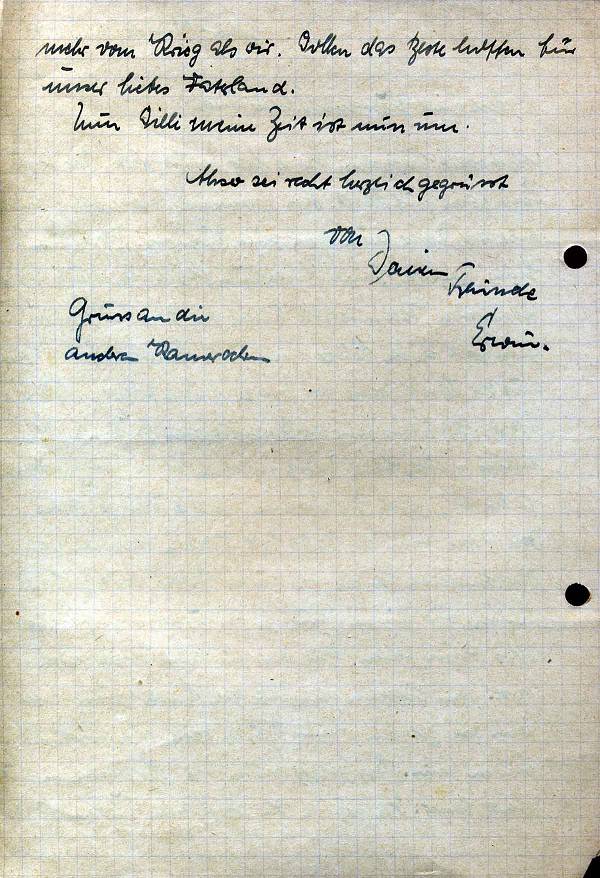 mehr vom Krieg als wir. Wollen das beste hoffen für
unser liebes Vaterland.
Nun Willi meine Zeit ist nun um.
Also sei recht herzlich gegrüsst
von
Deinem Freunde
Erwin.
Gruss an die
andern Kameraden